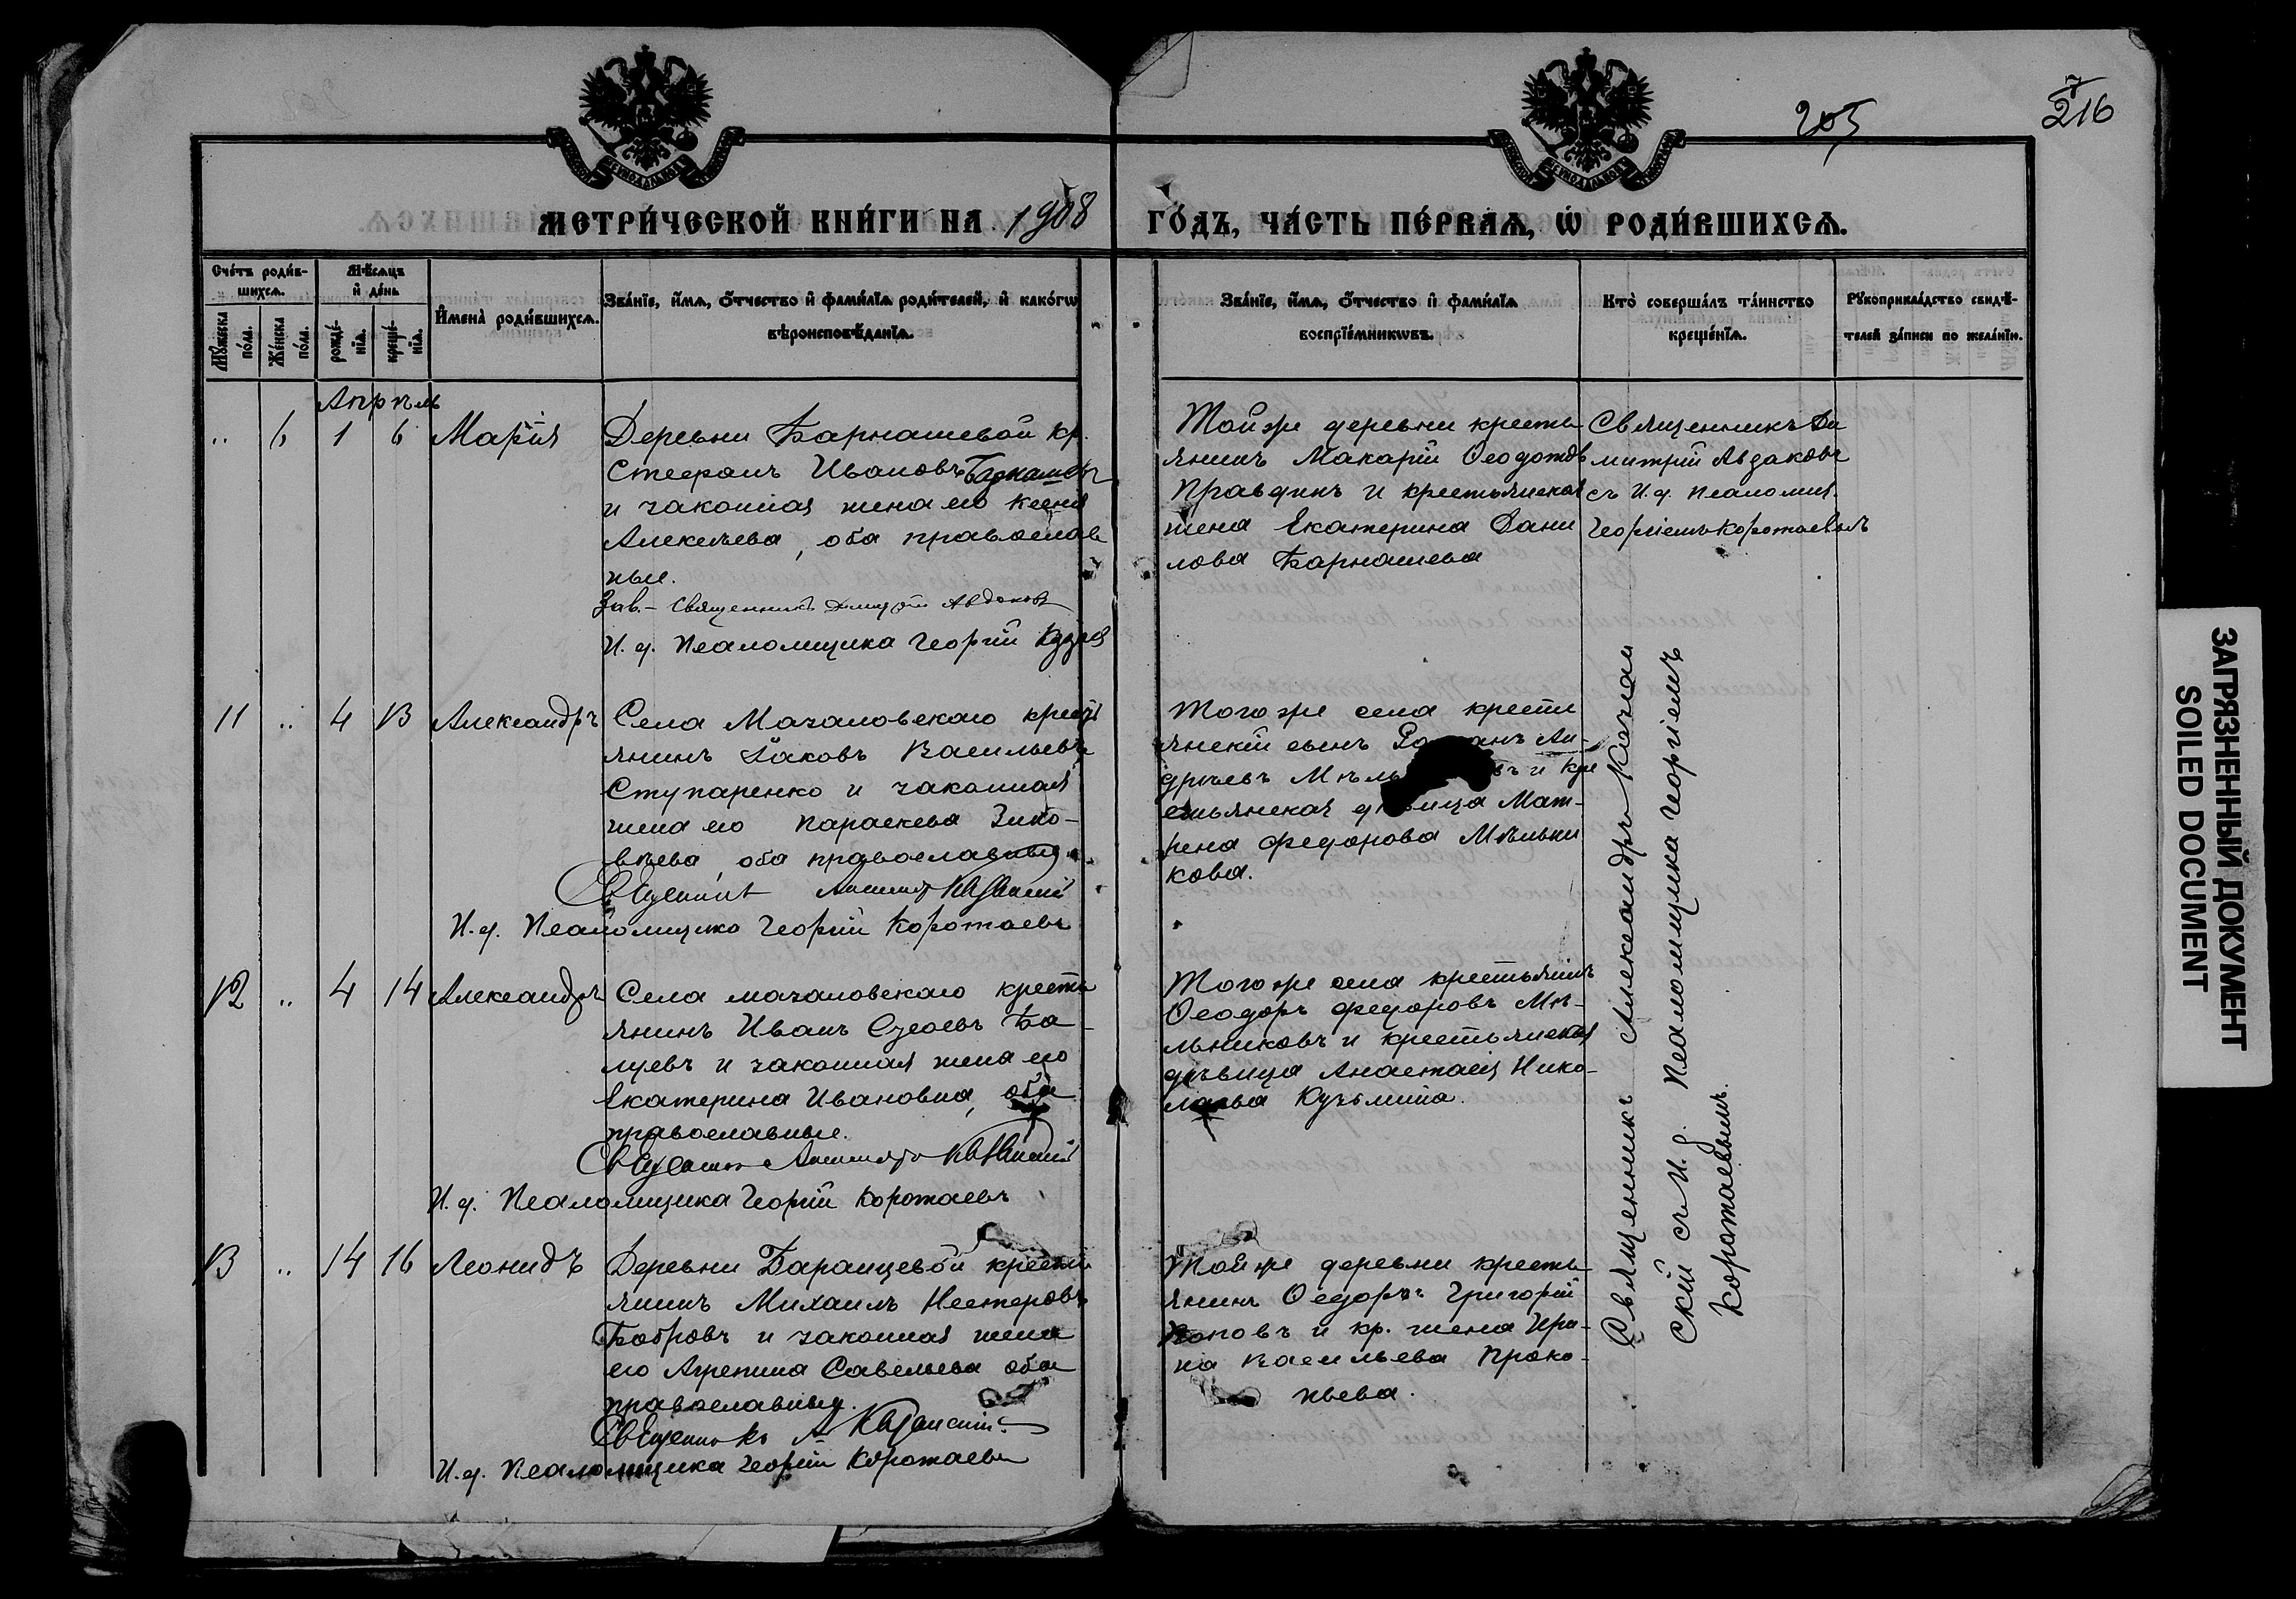 205
7
216
МЕТРИ́ЧЕСКОЙ КНИ́ГИ НА 1908 ГО́ДЪ, ЧА́СТЬ ПЕ́РВАѦ, Ѡ РОДИ́ВШИХСѦ.
Сче́тъ роди́в-
шихсѧ.
Мꙋ́жеска
по́ла.
Же́нска
по́ла.
Мѣ́сѧцъ
и҆ де́нь
рожде́-
нїѧ.
креще́-
нїѧ.
И҆мена̀ роди́вшихсѧ.
Зва́нїе, и҆́мѧ, ѻ҆́тчество и҆ фами́лїѧ роди́телей, и҆ како́гѡ
вѣроисповѣ́данїѧ.
Зва́нїе, и҆́мѧ, ѻ҆́тчество и҆ фами́лїѧ
воспрїе́мникѡвъ.
Кто̀ соверша́лъ та́инство
креще́нїѧ.
Рꙋкоприкла́дство свидѣ́-
телей за́писи по жела́нїю.
Апрѣль
" 6 1 6 Марія
Деревни Барнашевой кр.
Стефанъ Ивановъ Барнашевъ
и законная жена его Ксенія
Алексѣева, оба православ
ные.
Зав. - Священникъ Димитрій Авдаковъ
И. д. Псаломщика Георгій
Той же деревни кресть
янинъ Макарій Ѳеодотовъ
Правдинъ и крестьянская
жена Екатерина Дани
лова Барнашева
Священникъ Ди
митрій Авдаковъ
съ И. д. Псаломщ.
Георгіемъ Коротаевымъ
11 " 4 13 Александръ
Села Мачаловскаго кресть
янинъ Іаковъ Васильевъ
Ступаренко и законная
жена его Параскева Зино-
вѣева, оба православныя.
Священникъ Александръ Казанскій
И. д. Псаломщика Георгій Коротаевъ
Того же села кресть
янскій сынъ Ан-
дрѣевъ и кре
стьянская дѣвица Мат-
рена Федорова Мѣльни
кова.
12 " 4 14 Александръ
Села Мачаловскаго кресть
янинъ Иванъ Ба-
щевъ и законная жена его
Екатерина Ивановна, оба
православные.
Священникъ Александръ Казанскій
И. д. Псаломщика Георгій Коротаевъ
Того же села крестьянинъ
Ѳеодоръ Федоровъ Мѣ-
льниковъ и крестьянская
дѣвица Анастасія Нико-
лаева Кузьмина.
13 " 14 16 Леонидъ
Деревни Баранцевой кресть
янинъ Михаилъ Нестеровъ
Бобровъ и законная жена
его Агрепина Савельева оба
православныя.
Священникъ А. Казанскій
И. д. Псаломщика Георгій Коротаевъ
Той же деревни кресть
янинъ Ѳедоръ Григорій
Поповъ и кр. жена Ири-
на Васильева Проко-
пьева.
Священникъ Александръ Казан
скій съ И. д. Псаломщика Георгіемъ
Коротаевымъ.
ЗАГРЯЗНЕННЫЙ ДОКУМЕНТ
SOILED DOCUMENT